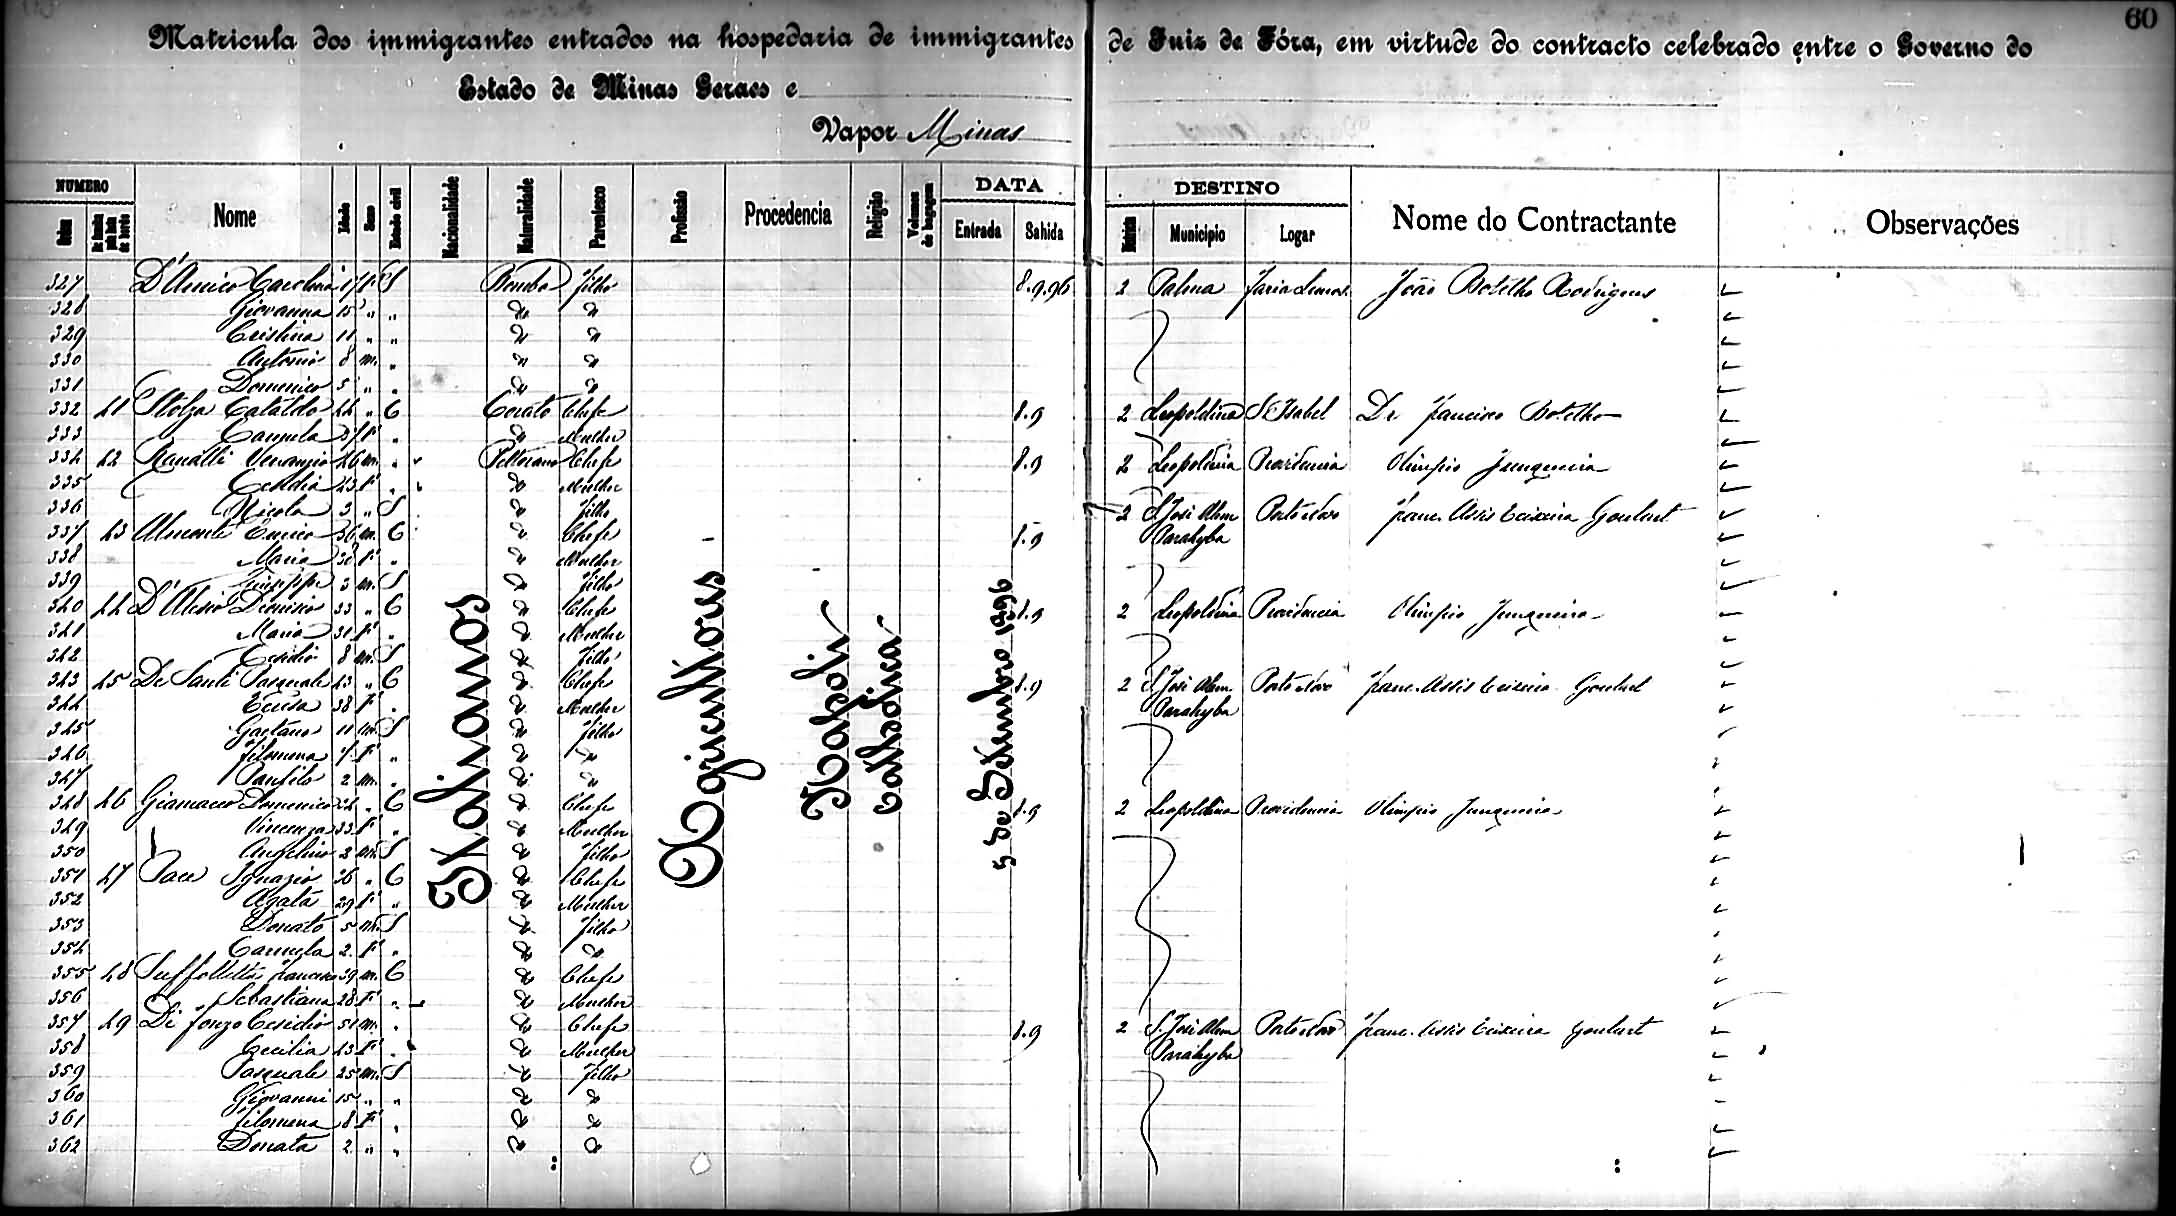 60
Matricula dos immigrantes entrados na hospedaria de immigrantes de Juiz de Fóra, em virtude do contracto celebrado entre o Governo do
Estado de Minas Geraes e
Vapor Minas
NUMERO DATA DESTINO
Ordem Nome Idade Sexo Estado civil Nacionalidade Naturalidade Parentesco Profissão Procedencia Religião Volumes de bagagem Entrada Sahida Municipio Logar Nome do Contractante Observações
Italianos Agricultores Napoli Catholica 5 de Setembro 1896
327 D'Amico Carolina 17 F S Filho 8.9.96 2 Palma Faria Lemos João Botelho Rodrigues
328 Giovanna 15 " " " "
329 Cristina 11 " " " "
330 Antonio 8 m. " " "
331 Domenico 5 " " " "
332 41 Stolza Cataldo 44 " C Corato Chefe 8.9 2 Leopoldina S. Isabel Dr Francisco Botelho
333 37 F " " Mulher
334 42 Ranalli Venanzio 46 m. " Pettorano Chefe 8.9 2 Leopoldina Providencia Olimpio Junqueira
335 Cesidia 43 F " " Mulher
336 Nicola 3 " S " Filho
337 43 Almonte Enrico 36 m. C " Chefe 8.9 2 S. José Alem Parahyba Porto Novo Franc. Assis Teixeira Goulart
338 Maria F " " Mulher
339 Giuseppe 3 m. S " Filho
340 44 D'Alesio Dionisio 33 " C " Chefe 8.9 2 Leopoldina Providencia Olimpio Junqueira
341 Maria 31 F " " Mulher
342 Cesidio 8 m. S " Filho
343 45 De Santi Pasquale 43 " C " Chefe 8.9 2 S. José Alem Parahyba Porto Novo Franc. Assis Teixeira Goulart
344 38 F " " Mulher
345 Gaetano 11 m. S " Filho
346 Filomena 7 F " " "
347 Panfilo 2 m. " " "
348 46 Giamacco Domenico 34 " C " Chefe 8.9 2 Leopoldina Providencia Olimpio Junqueira
349 Vincenza 33 F " " Mulher
350 Angelino 2 m. S " Filho
351 47 Pace Ignazio 36 " C " Chefe
352 Agata 29 F " " Mulher
353 Donato 5 m. S " Filho
354 Carmela 2 F " " "
355 48 Suffoletta Francesco 39 m. C " Chefe
356 Sebastiana 28 F " " Mulher
357 49 Di Jonzo Cesidio 51 m. " " Chefe 8.9 2 S. José Alem Parahyba Porto Novo Franc. Assis Teixeira Goulart
358 Cecilia 43 F " " Mulher
359 Pasquale 25 m. S " Filho
360 Giovanni 15 " " " "
361 Filomena 8 F " " "
362 Donata 2 " " " "